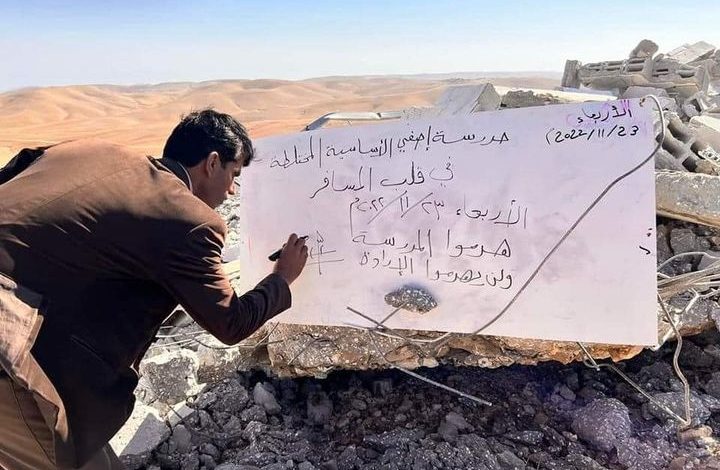 الأربعاء
2022/11/23
مدرسة إصفي الأساسية المختلطة
في قلب المسافر
الأربعاء ٢٠٢٢/١١/٢٣م
هدموا المدرسة
ولن يهدموا الإرادة